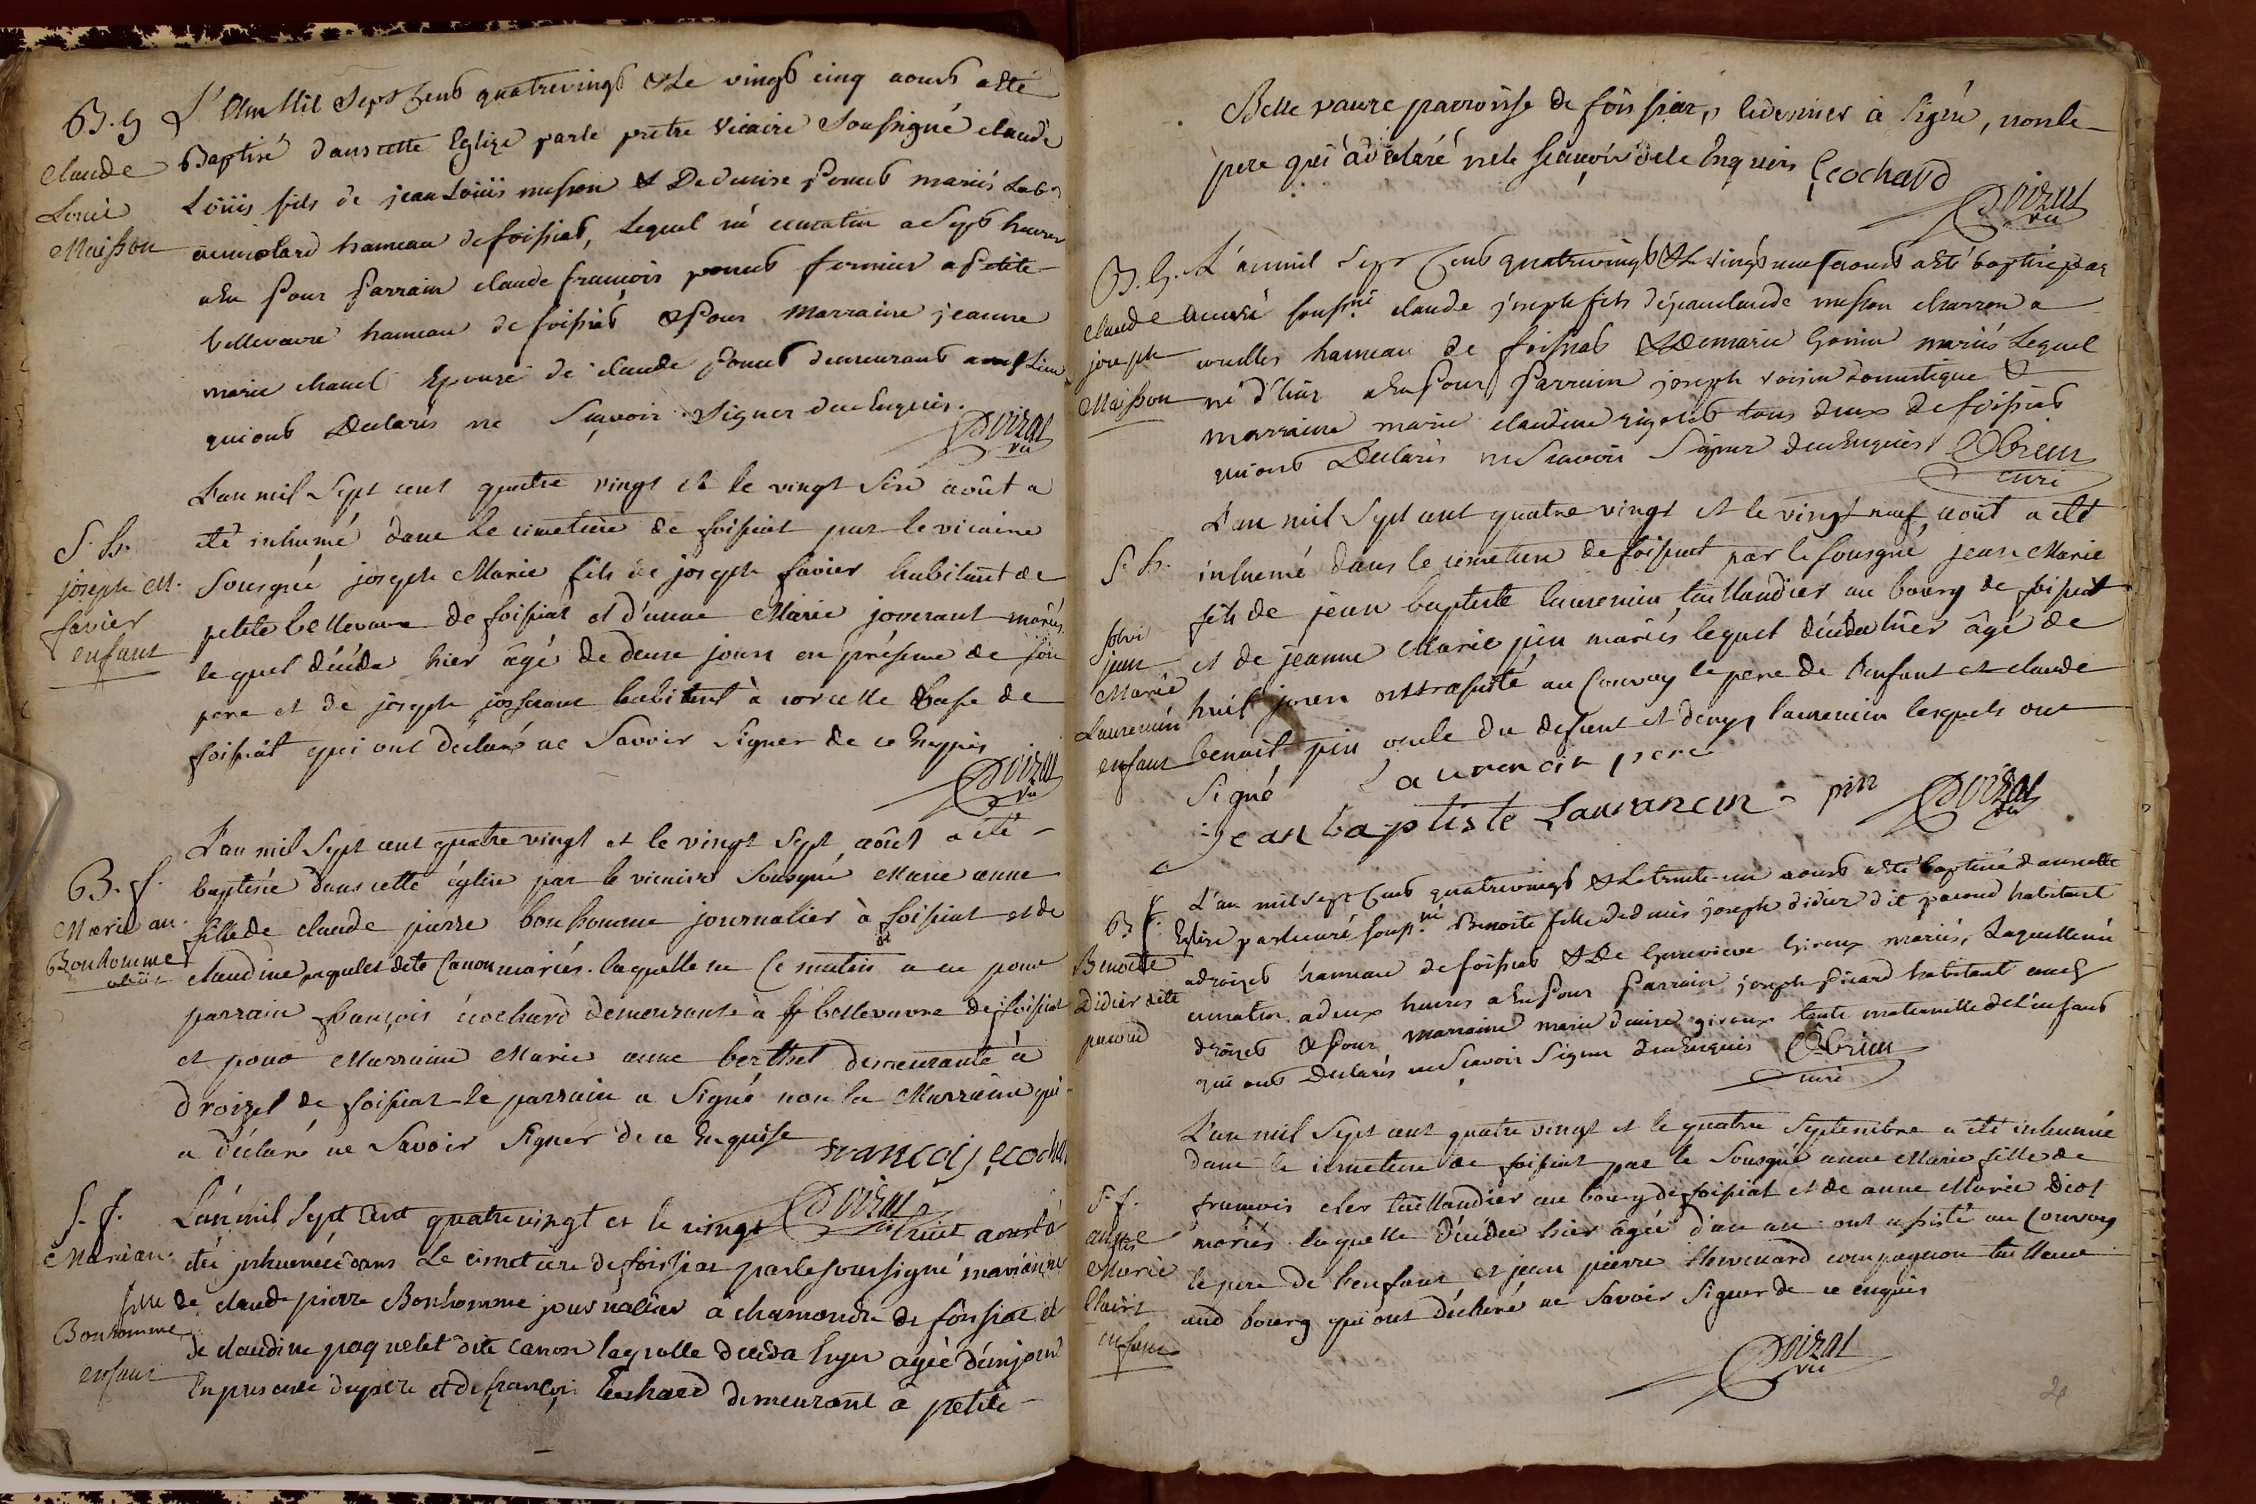 B. g
Claude
Louis
Maisson
L'an Mil Sept Cens quatrevingt & Le vingt cinq aoust a été
Baptisé dans cette Eglize par le pretre Vicaire Soussigné claude
Loüis fils de jean Loüis musson & De denise ponet mariés Lab.rs
hameau de foissiat, Lequel né ce matin a Sept heures
a Eu pour parrain claude francois ponet fermier a petite
bellevavre hameau de foissiat & pour Marraine jeanne
marie chanel Epouse de claude ponet demeurant
qui ont Declarés ne Sçavoir Signer de ce Enquis.
Doizat
vic
S. h.
joseph M.
favier
enfant
L'an mil Sept cent quatre vingt et le vingt Sixe août a
été inhumé dans Le cimetiere de foissiat par le vicaire
Sousigné joseph Marie fils de joseph favier habitant de
petite bellevavre de foissiat et d'anne Marie josserant mariés
lequel décéda hier âgé de deux jours en présence de son
pere et de joseph josserant habitant à corcelle basse de
foissiat qui ont déclaré ne Savoir Signer de ce Enquis
Doizat
vic
B. f.
Marie an.
Bonhomme
L'an mil Sept cent quatre vingt et le vingt Sept août a été
baptisée dans cette église par le vicaire Sousigné Marie anne
fille de claude pierre bonhomme journalier à foissiat et de
claudine paquelet dite Canon mariés. laquelle née Ce matin a eu pour
parrain françois écochard demeurant à bellevavre de foissiat
et pour Marraine Marie anne berthet demeurante à
droizet de foissiat le parrain a Signé non la Marraine qui
a déclaré ne Savoir Signer de ce Enquise françois ecochar
Doizat
S. f.
Marie an.
Bonhomme
enfant
L'an mil Sept Cent quatrevingt et le vingt huit aoust a
été inhumée dans Le cimetiere de foissiat par le soussigné marie anne
fille de claude pierre Bonhomme journalier a chamandre de foissiat et
de claudine paquelet dite canon laquelle déceda hyer agée d'un jour
En presence du pere et de françois Ecochard demeurant a petite
Belle vavre parroisse de foissiat, le dernier à signé, non le
pere qui a declaré ne le sçavoir de ce Enquis Ecochard
Doizat
vic
B. g.
claude
joseph
Maisson
L'an mil Sept Cens quatrevingt & Le vingt neuf aoust a été baptisé par
le curé souss.né claude joseph fils de jean claude musson charron a
hameau de foissiat & De marie Gonin mariés Lequel
né d'hier a Eu pour parrain joseph voisin domestique &
marraine marie claudine rigolet tous deux de foissiat
qui ont Declarés ne Scavoir Signer de ce Enquis
curé
S. h.
jean
Marie
Laurencin
enfant
L'an mil Sept cent quatre vingt et le vingt neuf, août a été
inhumé dans le cimetiere de foissiat par le sousigné jean Marie
fils de jean baptiste laurencin taillandier au bourg de foissiat
et de jeanne Marie pin mariés lequel décéda hier âgé de
huit jours ont assisté au Convoy le pere de l'enfant et claude
benoit pin oncle du defunt et denys laurencin lesquels ont
Signé Laurencin pere
jean baptiste Laurancin pin Doizat
vic
B f.
Benoitte
Didier dite
pacoud
L'an mil Sept Cens quatrevingt & Le trente un aoust a été baptisée dans cette
Eglise par le curé souss.né Benoite fille de denis joseph didier dit pacoud habitant
a droizet hameau de foissiat & De Genevieve Giroux mariés, Laquelle née
ce matin a deux heures a Eu pour parrain joseph picard habitant
droizet & pour marraine marie denise giroux tante maternelle de l'enfant
qui ont Declarés ne Scavoir Signer de ce Enquis
curé
S. f.
anne
Marie
Clerc
enfant
L'an mil Sept cent quatre vingt et le quatre Septembre a été inhumée
dans le cimetiere de foissiat par le Sousigné anne Marie fille de
francois clerc taillandier au bourg de foissiat et de anne Marie diot
mariés laquelle décéda hier âgée d'un an ont assisté au Convoy
le pere de l'enfant et jean pierre thevenard compagnon taillandier
aud bourg qui ont déclaré ne Savoir Signer de ce enquis
Doizat
vic